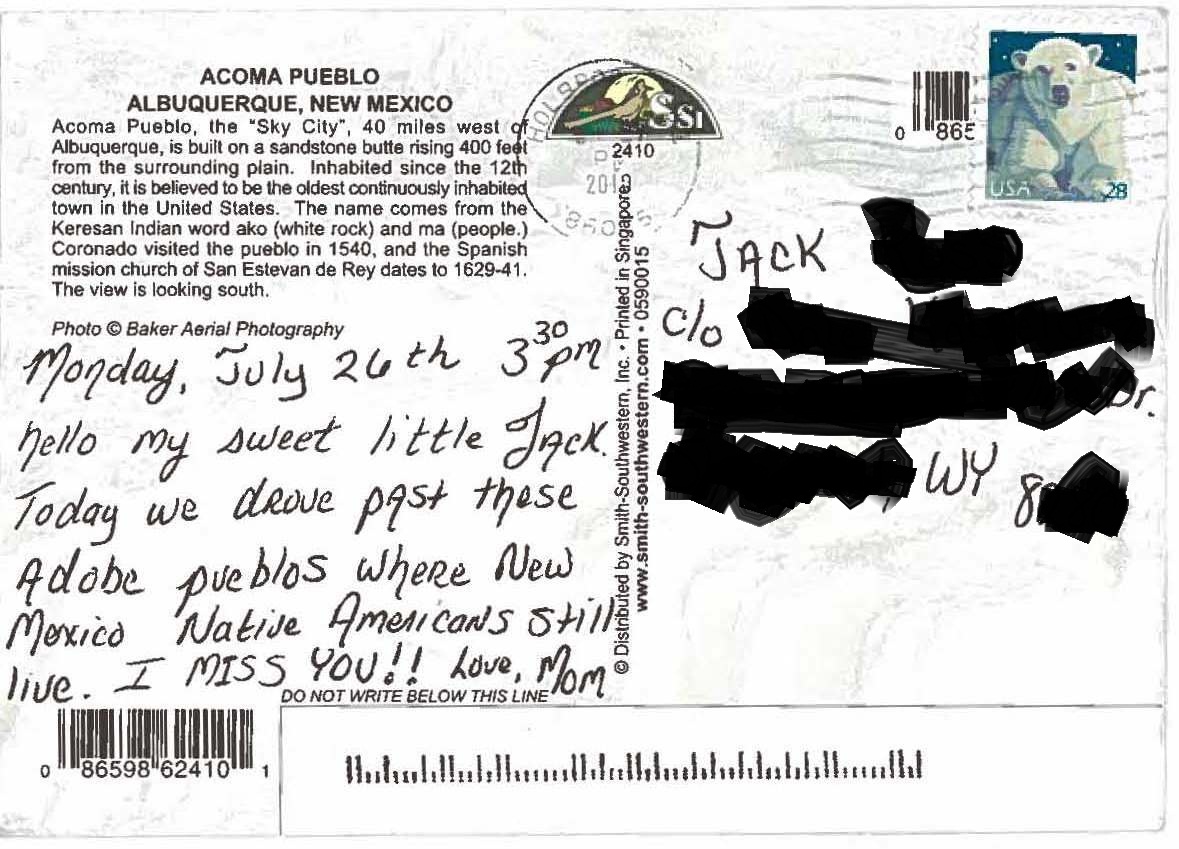 ACOMA PUEBLO
ALBUQUERQUE, NEW MEXICO
Acoma Pueblo, the "Sky City", 40 miles west of
Albuquerque, is built on a sandstone butte rising 400 feet
from the surrounding plain. Inhabited since the 12th
century, it is believed to be the oldest continuously inhabited
town in the United States. The name comes from the
Keresan Indian word ako (white rock) and ma (people.)
Coronado visited the pueblo in 1540, and the Spanish
mission church of San Estevan de Rey dates to 1629-41.
The view is looking south.
Photo © Baker Aerial Photography
Monday, July 26th 3 30 pm
hello my sweet little JACK.
Today we drove past these
Adobe pueblos where New
Mexico Native Americans still
live. I MISS YOU!! Love, Mom
DO NOT WRITE BELOW THIS LINE
0 86598 62410 1
SSI
2410
© Distributed by Smith-Southwestern, Inc. • Printed in Singapore
www.smith-southwestern.com • 0590015
0 865
USA 28
JACK
c/o
Dr.
WY 8